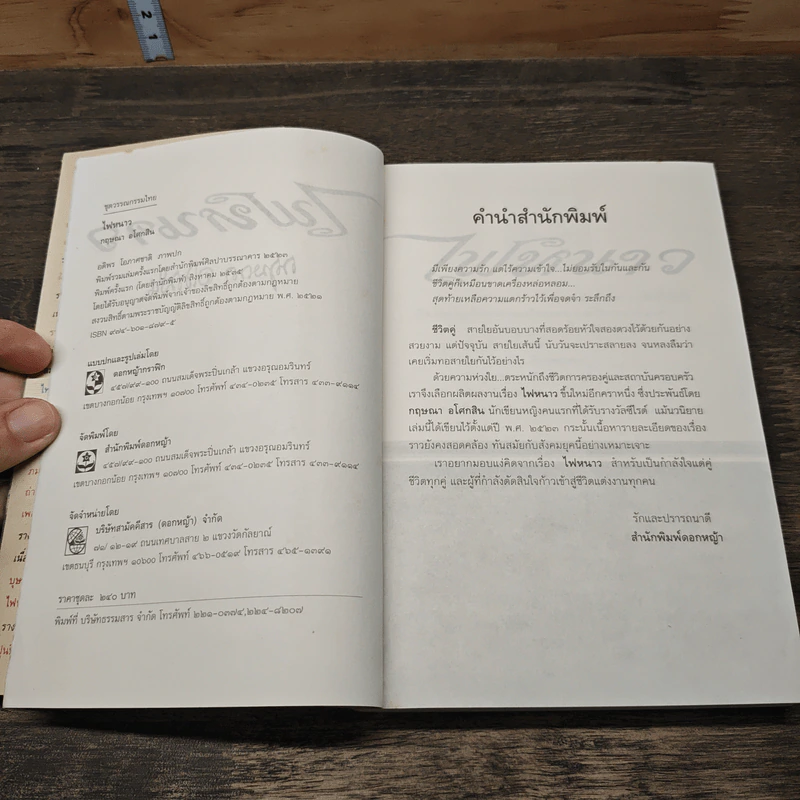 ชุดวรรณกรรมไทย
ไฟหนาว
กฤษณา อโศกสิน
อติพร โอภาศชาติ ภาพปก
พิมพ์รวมเล่มครั้งแรกโดยสำนักพิมพ์ศิลปาบรรณาคาร ๒๕๒๓
พิมพ์ครั้งแรก (โดยสำนักพิมพ์) สิงหาคม ๒๕๓๔
โดยได้รับอนุญาตจัดพิมพ์จากเจ้าของลิขสิทธิ์ถูกต้องตามกฎหมาย
สงวนสิทธิ์ตามพระราชบัญญัติลิขสิทธิ์ถูกต้องตามกฎหมาย พ.ศ. ๒๕๒๑
ISBN ๙๗๔-๖๐๑-๘๗๙-๕
แบบปกและรูปเล่มโดย
ดอกหญ้ากราฟิก
๔๕๗/๙๙-๑๐๐ ถนนสมเด็จพระปิ่นเกล้า แขวงอรุณอมรินทร์
เขตบางกอกน้อย กรุงเทพฯ ๑๐๗๐๐ โทรศัพท์ ๔๓๔-๐๒๓๕ โทรสาร ๔๓๓-๙๑๑๔
จัดพิมพ์โดย
สำนักพิมพ์ดอกหญ้า
๔๕๗/๙๙-๑๐๐ ถนนสมเด็จพระปิ่นเกล้า แขวงอรุณอมรินทร์
เขตบางกอกน้อย กรุงเทพฯ ๑๐๗๐๐ โทรศัพท์ ๔๓๔-๐๒๓๕ โทรสาร ๔๓๓-๙๑๑๔
จัดจำหน่ายโดย
บริษัทสามัคคีสาร (ดอกหญ้า) จำกัด
๗๘/ ๑๒-๑๙ ถนนเทศบาลสาย ๒ แขวงวัดกัลยาณ์
เขตธนบุรี กรุงเทพฯ ๑๐๖๐๐ โทรศัพท์ ๔๖๖-๐๕๑๙ โทรสาร ๔๖๕-๑๓๙๑
ราคาชุดละ ๒๔๐ บาท
พิมพ์ที่ บริษัทธรรมสาร จำกัด โทรศัพท์ ๒๒๑-๐๓๗๔,๒๒๔-๘๒๐๗
คำนำสำนักพิมพ์
มีเพียงความรัก แต่ไร้ความเข้าใจ...ไม่ยอมรับในกันและกัน
ชีวิตคู่ก็เหมือนขาดเครื่องหล่อหลอม...
สุดท้ายเหลือความแตกร้าวไว้เพื่อจดจำ ระลึกถึง
ชีวิตคู่ สายใยอันบอบบางที่สอดร้อยหัวใจสองดวงไว้ด้วยกันอย่าง
สวยงาม แต่ปัจจุบัน สายใยเส้นนี้ นับวันจะเปราะสลายลง จนหลงลืมว่า
เคยเริ่มทอสายใยกันไว้อย่างไร
ด้วยความห่วงใย...ตระหนักถึงชีวิตการครองคู่และสถาบันครอบครัว
เราจึงเลือกผลิตผลงานเรื่อง ไฟหนาว ขึ้นใหม่อีกคราหนึ่ง ซึ่งประพันธ์โดย
กฤษณา อโศกสิน นักเขียนหญิงคนแรกที่ได้รับรางวัลซีไรต์ แม้นวนิยาย
เล่มนี้ได้เขียนไว้ตั้งแต่ปี พ.ศ. ๒๕๒๓ กระนั้นเนื้อหารายละเอียดของเรื่อง
ราวยังคงสอดคล้อง ทันสมัยกับสังคมยุคนี้อย่างเหมาะเจาะ
เราอยากมอบแง่คิดจากเรื่อง ไฟหนาว สำหรับเป็นกำลังใจแด่คู่
ชีวิตทุกคู่ และผู้ที่กำลังตัดสินใจก้าวเข้าสู่ชีวิตแต่งงานทุกคน
รักและปรารถนาดี
สำนักพิมพ์ดอกหญ้า